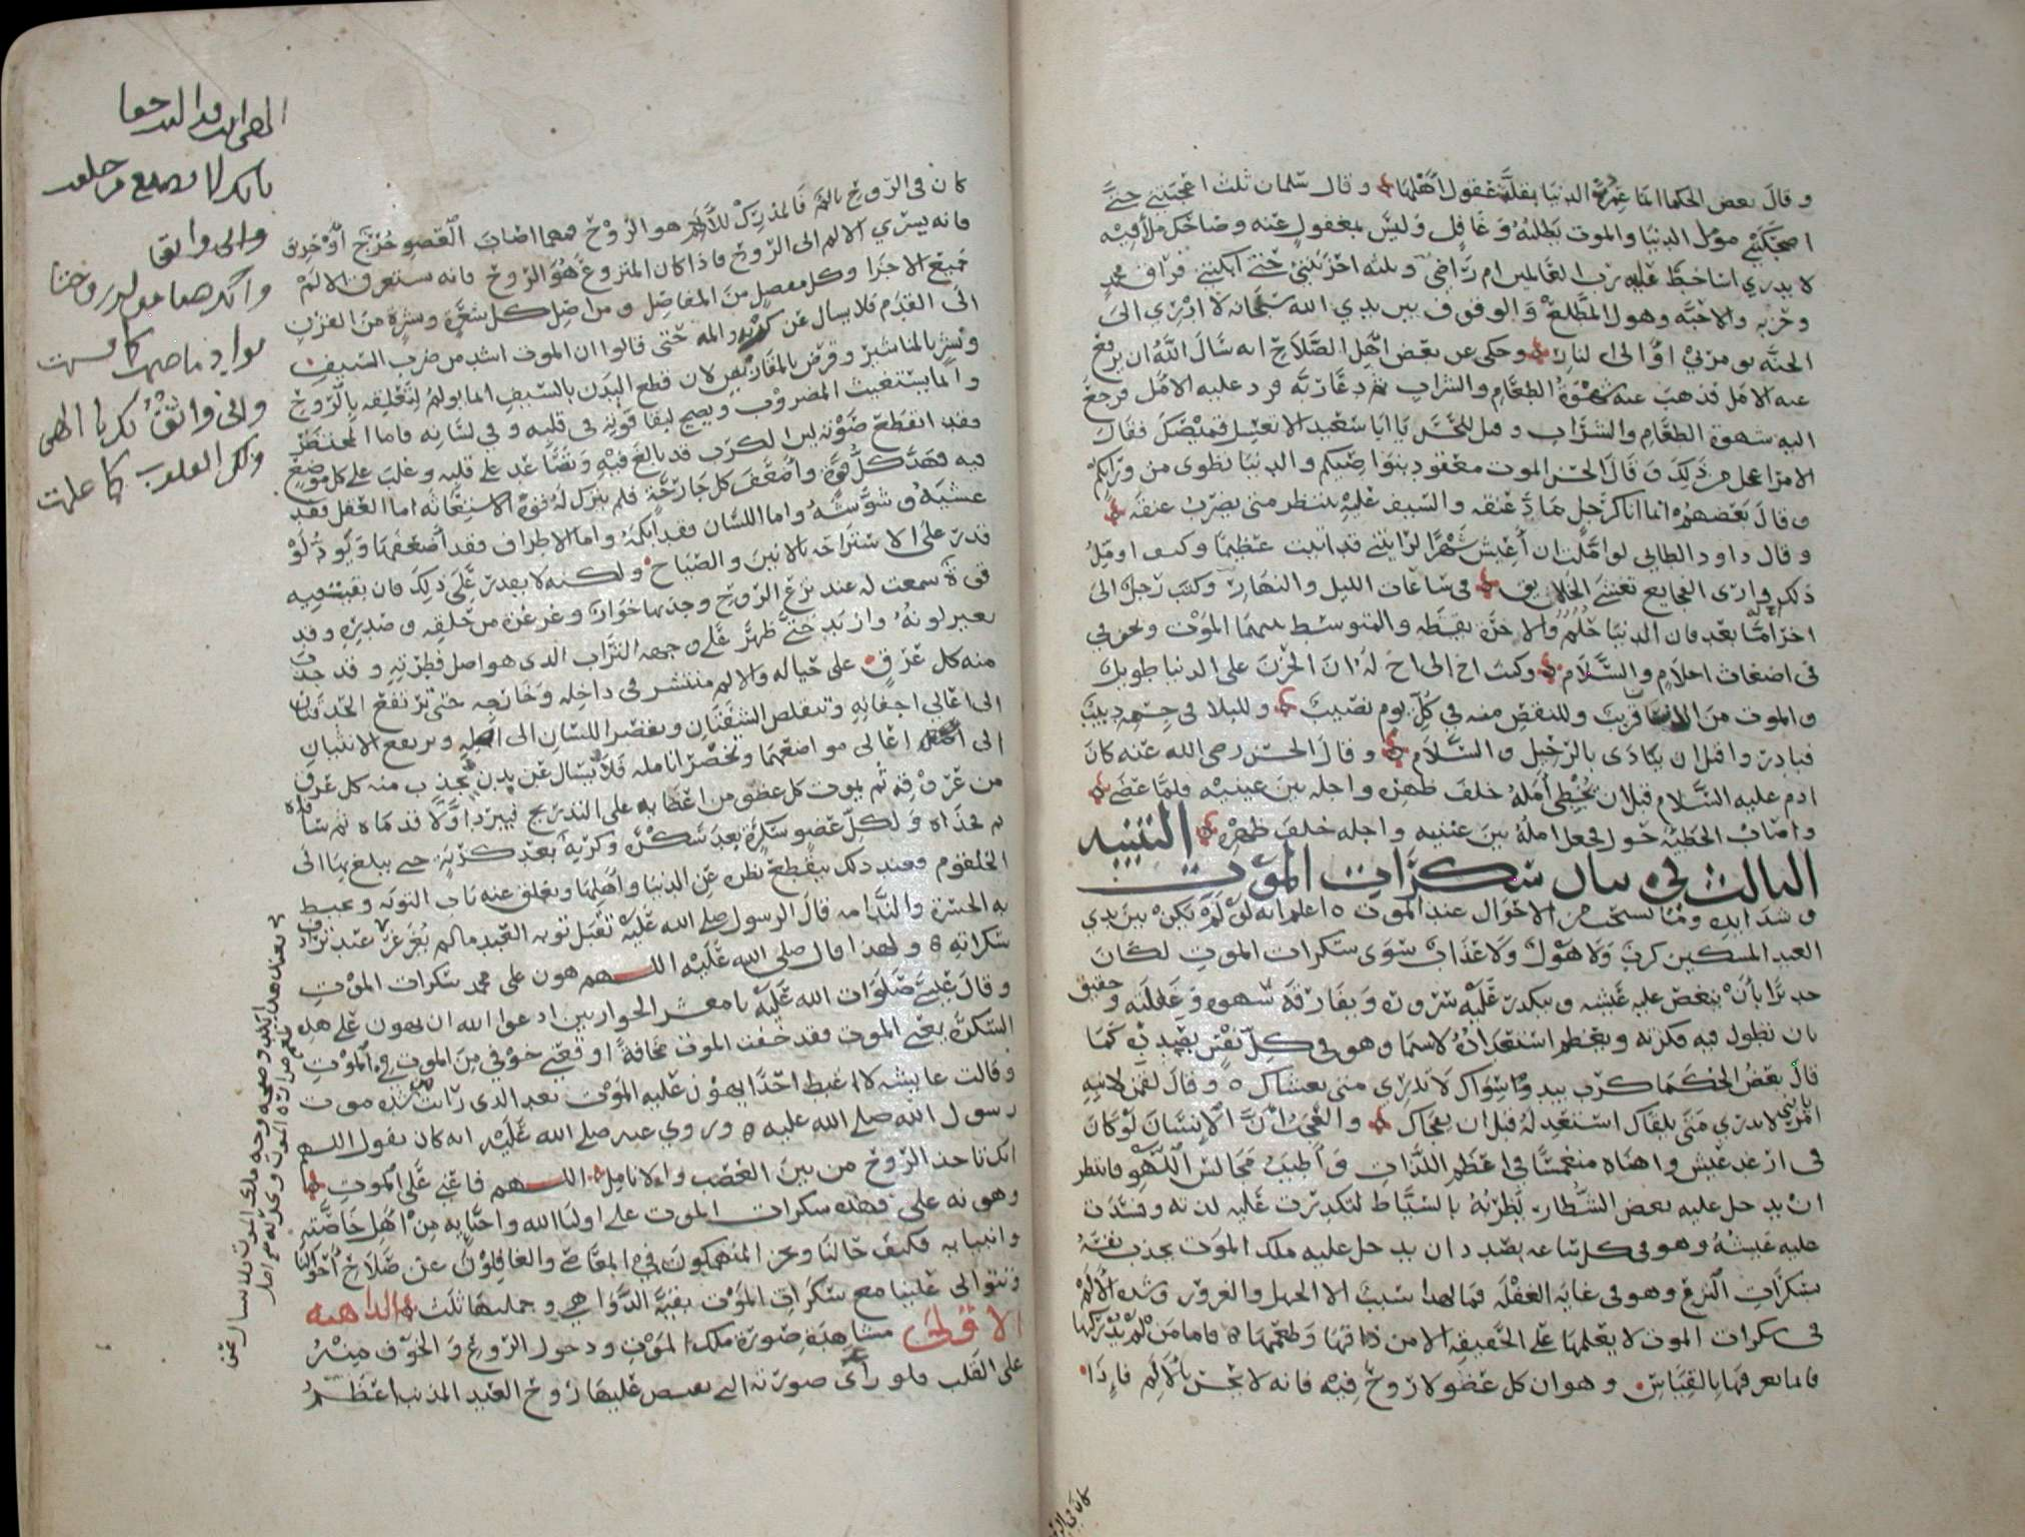 وقال بعض الحكما انما عمرت الدنيا بقلة عقول اهلها وقال سلمان ثلث اعجبتني حتى
اضحكتني مومل الدنيا والموت يطلبه وغافل وليس بمغفول عنه وضاحك ملأ فيه
لا يدري اساخط عليه رب العالمين ام راضي وثلثه احزنتني حتى ابكتني فراق محمد
وحزبه والاحبه وهول المطلع والوقوف بين يدي الله سبحانه لا ادري الى
الجنه يومر بي او الى النار وحكى عن بعض اهل الصلاح انه سال الله ان يرفع
عنه الامل فذهب عنه شهوة الطعام والشراب ثم دعا ربه فرد عليه الامل فرجع
اليه شهوة الطعام والشراب وقيل للحسن يا ابا سعيد الا تغسل قميصك فقال
الامر اعجل من ذلك وقال الحسن الموت معقود بنواصيكم والدنيا تطوى من ورايكم
وقال بعضهم انما انا كرجل ماد عنقه والسيف عليه ينتظر متى يضرب عنقه
وقال داود الطايي لو املت ان اعيش شهرا لرايتني قد اتيت عظيما وكيف اومل
ذلك وارى الفجايع تغشى الخلايق في ساعات الليل والنهار وكتب رجل الى
اخر اما بعد فان الدنيا حلم والاخرة يقظه والمتوسط بينهما الموت ونحن في
في اضغاث احلام والسلام وكتب اخ الى اخ له ان الحزن على الدنيا طويل
والموت من الانسان قريب وللنقص منه في كل يوم نصيب وللبلا في جسمه دبيب
فبادر وا قبل ان ينادى بالرحيل والسلام وقال الحسن رضي الله عنه كان
ادم عليه السلام قبل ان يخطى امله خلف ظهره واجله بين عينيه فلما عصى
واصاب الخطيه حول فجعل امله بين عينيه واجله خلف ظهره التنبيه
الثالث في بيان سكرات الموت
وشدايده وما يستحب من الاحوال عند الموت اعلم انه لو لم يكن بين يدي
العبد المسكين كرب ولا هول ولا عذاب سوى سكرات الموت لكان
جديرا بأن ينغص عليه عيشه ويتكدر عليه سروره ويفارقه سهوه وغفلته وحقيق
بان تطول فيه فكرته ويعظم استعداده لاسيما وهو في كل نفس بصدده كما
قال بعض الحكما كرب بيد سواك لا تدري متى يغشاك وقال لقمن لابنه
يا بني امر لا تدري متى يلقاك استعد له قبل ان يفجاك والعجب ان الانسان لو كان
في ارغد عيش واهناه منغمسا في اعظم اللذات واطيب مجالس اللهو فانتظر
ان يدخل عليه بعض الشطار يضربه بالسياط لتكدرت عليه لذته وفسدت
عليه عيشه وهو في كل ساعه بصدد ان يدخل عليه ملك الموت بجذب نفسه
بسكرات النزع وهو في غاية الغفله فما لهذا سبب الا الجهل والغرور وشده الألم
في سكرات الموت لا يعلمها على الحقيقه الا من ذاقها وطعمها فاما من لم يدركها
فانما يعرفها بالقياس وهو ان كل عضو لا روح فيه فانه لا يحس بالألم فإذا
كان في الروح
كان في الروح بالم فالمدرك للألم هو الروح فمهما اصاب العضو جرح أو حريق
فانه يسري الالم الى الروح فاذا كان المنزوع هو الروح فانه يستغرق الالم
جميع الاجزا وكل مفصل من المفاصل ومن اصل كل شعره وبشره من الفرق
الى القدم فلا يسال عن كربه والمه حتى قالوا ان الموت اشد من ضرب السيف
ونشر بالمناشير وقرض بالمقاريض لان قطع البدن بالسيف انما يولم لتعلقه بالروح
وانما يستغيث المضروب ويصيح لبقا قوته في قلبه وفي لسانه فاما المحتضر
فقد انقطع صوته لان الكرب قد بالغ فيه وتصاعد على قلبه وغلب على كل موضع
فيه فهد كل قوة واضعف كل جارحة فلم يترك له قوة الاستغاثه اما العقل فقد
غشيه وشوشه واما اللسان فقد ابكمه واما الاطراف فقد أضعفها ويود لو
قدر على الاستراحه بالانين والصياح ولكنه لا يقدر على ذلك فان بقيت فيه
قوة سمعت له عند نزع الروح وجذبها خوارا وغرغرة من حلقه وصدره وقد
تغير لونه وازبد حتى ظهر على وجهه التراب الذي هو اصل فطرته وقد جذب
منه كل عرق على حياله والالم منتشر في داخله وخارجه حتى ترتفع الحدقتان
الى اعالي اجفانه وتتقلص الشفتان ويقصر اللسان الى اصله ويرتفع الانثيان
الى اعالي مواضعهما وتخضر انامله فلا يسال عن بدن يجذب منه كل عرق
من عروقه ثم يموت كل عضو من اعضايه على التدريج فيبرد اولا قدماه ثم ساقاه
ثم فخذاه ولكل عضو سكرة بعد سكرة وكربة بعد كربة حتى يبلغ بها الى
الحلقوم فعند ذلك ينقطع نظره عن الدنيا وأهلها ويغلق عنه باب التوبه ويحيط
به الحسرة والندامه قال الرسول صلى الله عليه تقبل توبه العبد مالم يغرغر عند ترادف
سكراته ولهذا قال صلى الله عليه اللهم هون على محمد سكرات الموت
وقال عيسى صلوات الله عليه يا معشر الحواريين ادعوا الله ان يهون علي هذه
السكرة يعني الموت فقد خفت الموت مخافة اوقعني خوفي من الموت في الموت
وقالت عايشه لا اغبط احدا يهون عليه الموت بعد الذي رأيت من شده موت
رسول الله صلى الله عليه وروي عنه صلى الله عليه انه كان يقول اللهم
انك تاخذ الروح من بين العصب والانامل اللهم فاعني على الموت
وهونه علي فهذه سكرات الموت على اوليا الله واحبايه من اهل خاصته
وانبيايه فكيف حالنا ونحن المنهمكون في المعاصي والغافلون عن صلاح أحوالنا
وتتوالى علينا مع سكرات الموت بقية الدواهي وجملتها ثلث الداهيه
الاولى مشاهدة صورة ملك الموت ودخول الروع والخوف منه
على القلب فلو رأى صورته التي يقبض عليها روح العبد المذنب اعظم